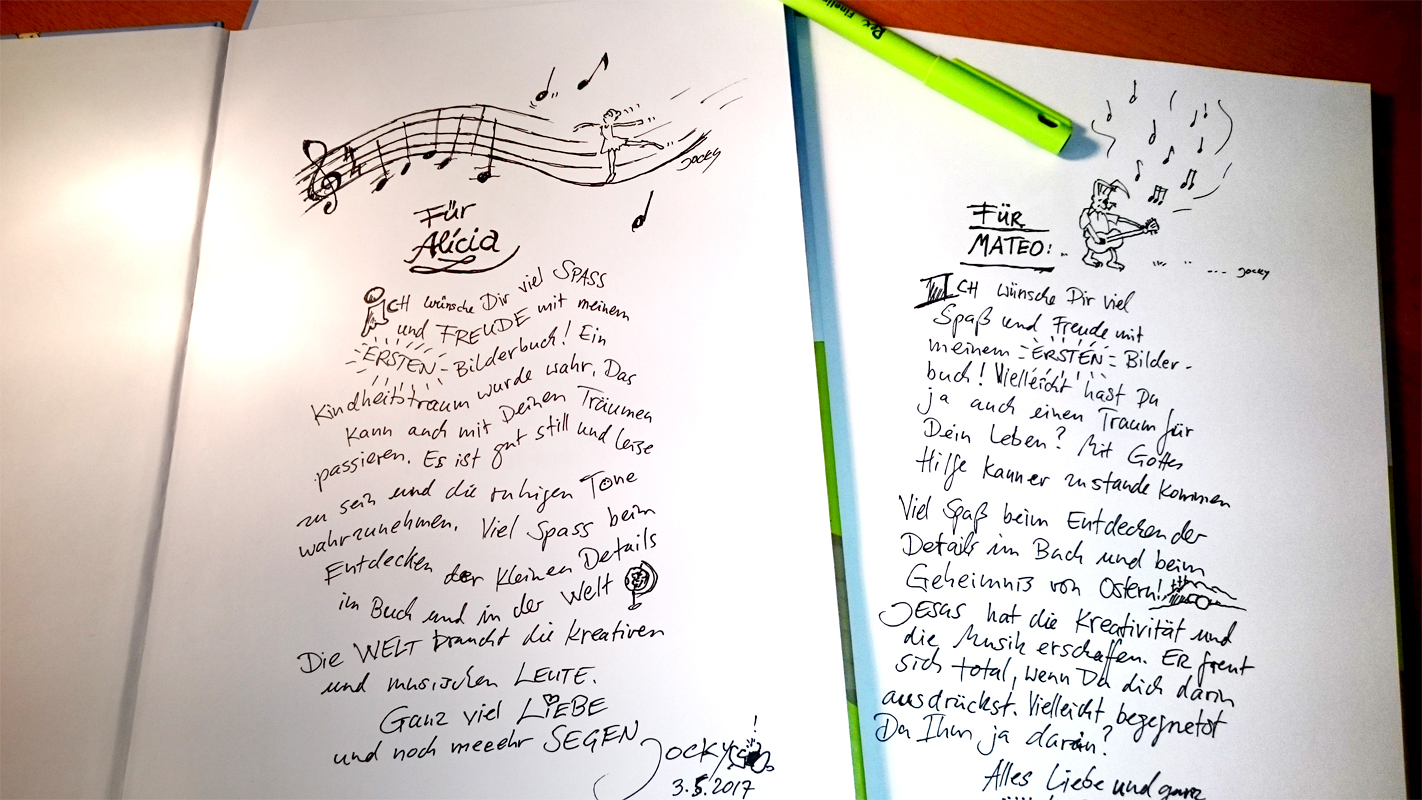 Jocky
Für
Alicia
ICH wünsche Dir viel SPASS
und FREUDE mit meinem
ERSTEN Bilderbuch! Ein
Kindheitstraum wurde wahr. Das
kann auch mit Deinen Träumen
passieren. Es ist gut still und leise
zu sein und die ruhigen Töne
wahrzunehmen. Viel Spass beim
Entdecken der kleinen Details
im Buch und in der Welt
Die WELT braucht die kreativen
und musischen LEUTE.
Ganz viel LIEBE
und noch meeehr SEGEN
Jocky
3.5.2017
Rex Fineli
Jocky
FÜR
MATEO:
ICH wünsche Dir viel
Spaß und Freude mit
meinem ERSTEN Bilder-
buch! Vielleicht hast Du
ja auch einen Traum für
Dein Leben? Mit Gottes
Hilfe kann er zustande kommen
Viel Spaß beim Entdecken der
Details im Buch und beim
Geheimnis von Ostern!
JESUS hat die Kreativität und
die Musik erschaffen. ER freut
sich total, wenn Du dich darin
ausdrückst. Vielleicht begegnetst
Du Ihm ja darin?
Alles Liebe und ganz